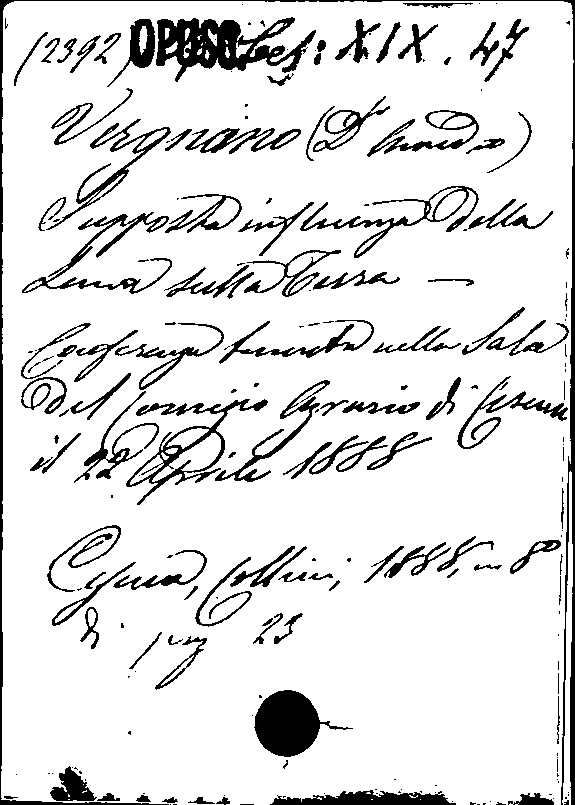 (2392) OPUSC. Ces: XIX. 47
Vergnano (Dr
Supposta influenza della
Luna sulla Terra —
Conferenza tenuta nella Sala
del Comizio Agrario di Cesena
il 22 Aprile 1888
Cesena, Collini, 1888, in 8º
di pag 23